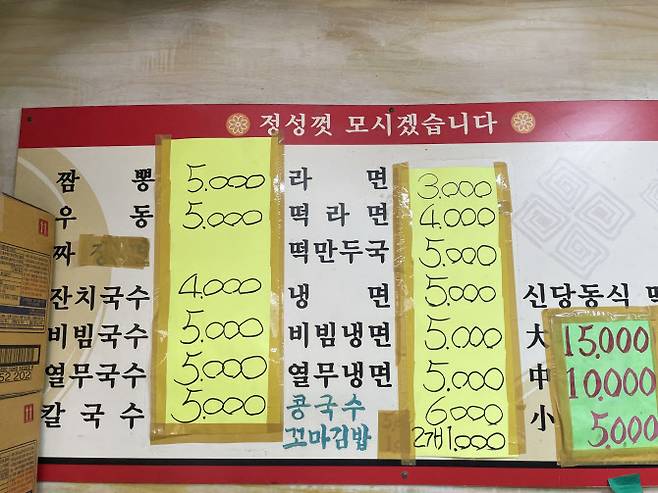 정성껏 모시겠습니다
짬뽕 5.000
우동 5.000
짜
잔치국수 4.000
비빔국수 5.000
열무국수 5.000
칼국수 5.000
라면 3.000
떡라면 4.000
떡만두국 5.000
냉면 5.000
비빔냉면 5.000
열무냉면 5.000
콩국수 6000
꼬마김밥 2개 1.000
신당동식
大 15.000
中 10.000
小 5.000
52 202